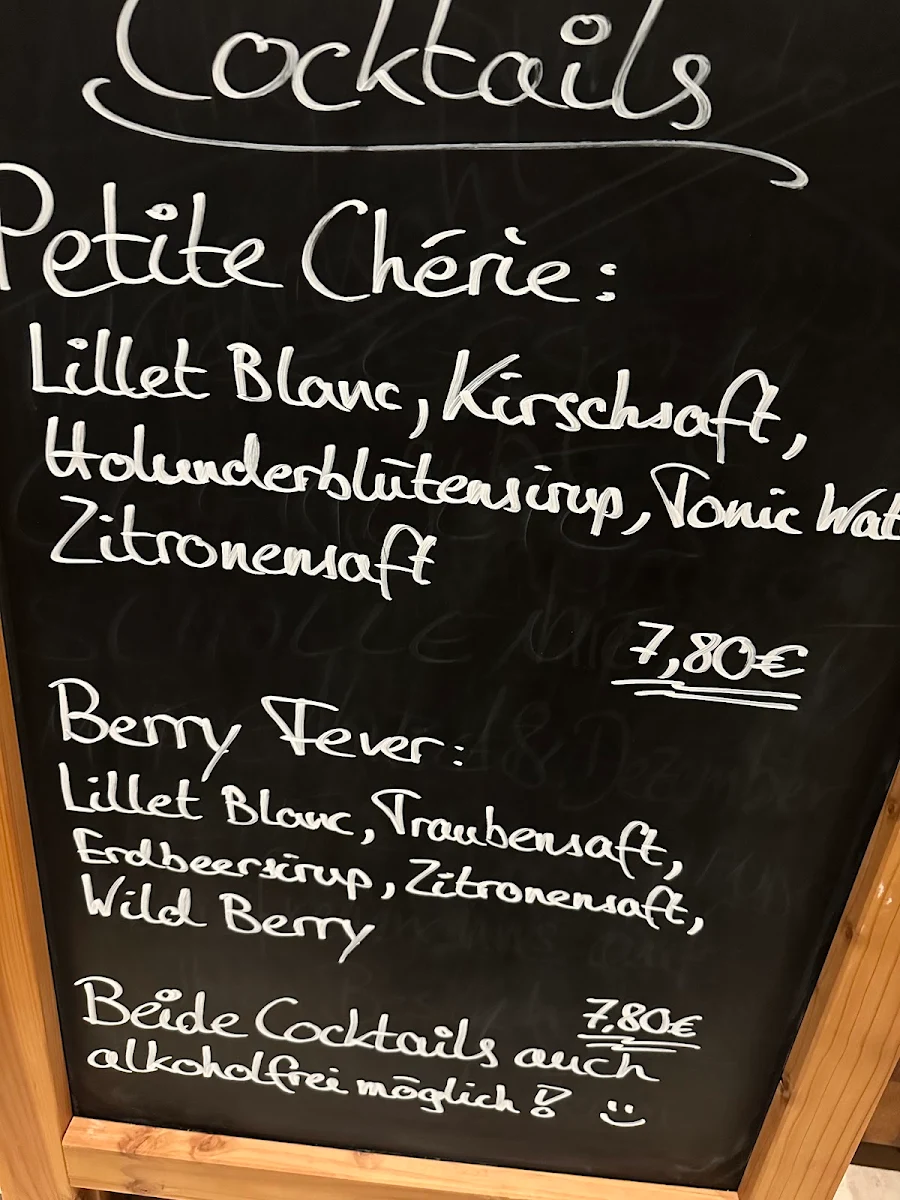 Cocktails
Petite Chérie:
Lillet Blanc, Kirschsaft,
Holunderblütensirup, Tonic Wat
Zitronensaft
7,80€
Berry Fever:
Lillet Blanc, Traubensaft,
Erdbeersirup, Zitronensaft,
Wild Berry
7,80€
Beide Cocktails auch
alkoholfrei möglich! :)